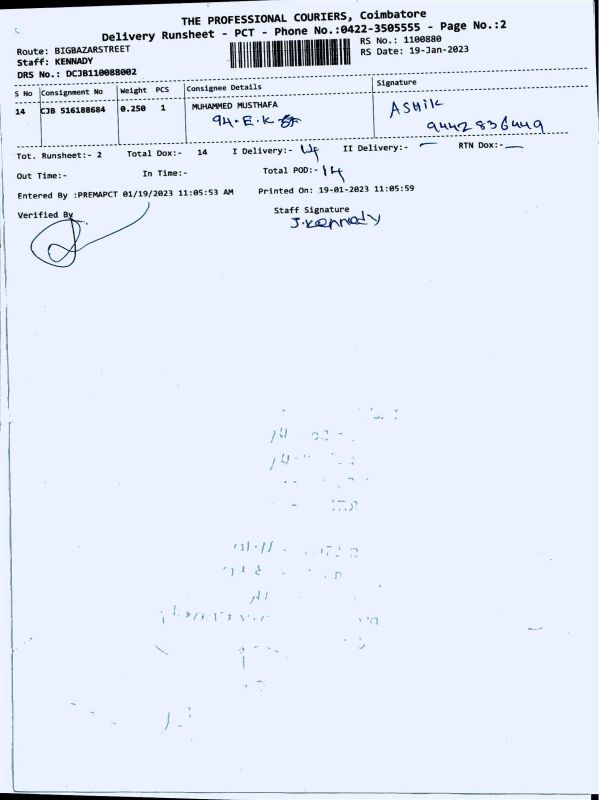 THE PROFESSIONAL COURIERS, Coimbatore
Delivery Runsheet - PCT - Phone No.:0422-3505555 - Page No.:2
Route: BIGBAZARSTREET
RS No.: 1100880
Staff: KENNADY
RS Date: 19-Jan-2023
DRS No.: DCJB110088002
S No Consignment No Weight PCS Consignee Details Signature
14 CJB 516188684 0.250 1 MUHAMMED MUSTHAFA ASHIK
94.E.K 9442836449
Tot. Runsheet:- 2 Total Dox:- 14 I Delivery:- 14 II Delivery:- — RTN Dox:- —
Out Time:- In Time:- Total POD:- 14
Entered By :PREMAPCT 01/19/2023 11:05:53 AM Printed On: 19-01-2023 11:05:59
Verified By Staff Signature
J.Kennady